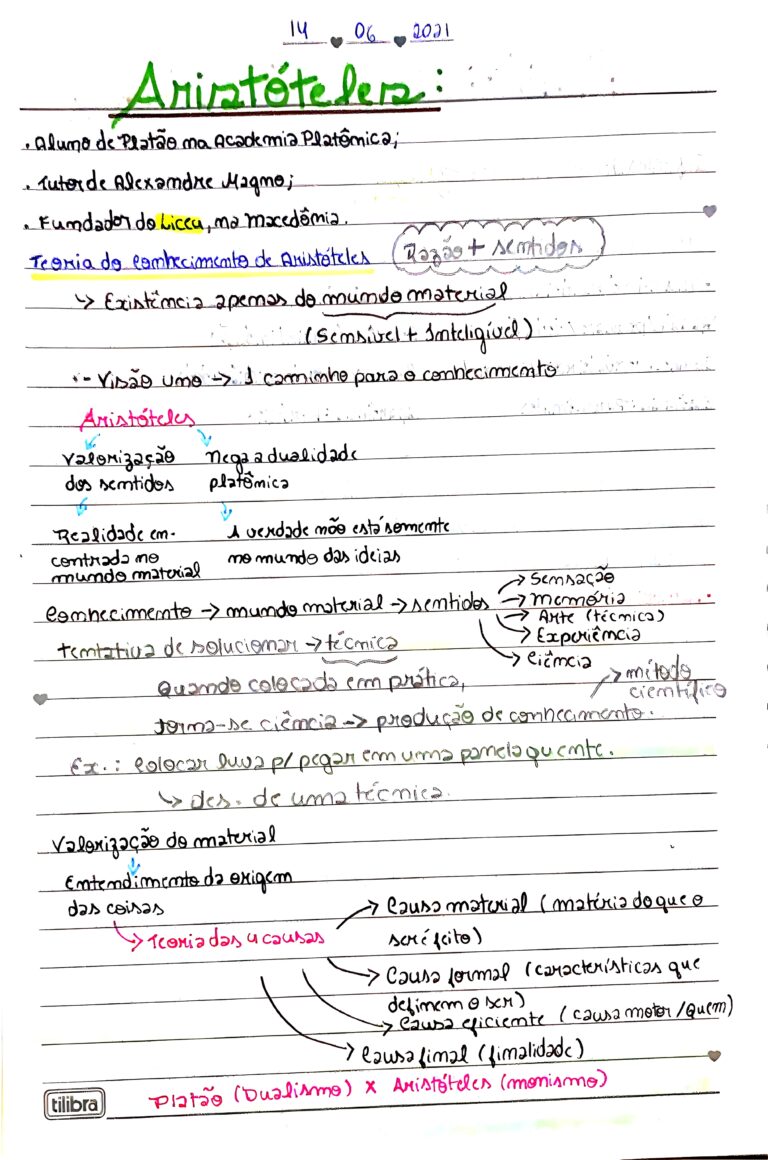 14 06 2021
Aristóteles:
• Aluno de Platão na Academia Platônica;
• Tutor de Alexandre Magno;
• Fundador do Liceu, na Macedônia.
Teoria do conhecimento de Aristóteles Razão + sentidos
↳ Existência apenas do mundo material
(Sensível + Inteligível)
•- Visão uno → 1 caminho para o conhecimento
Aristóteles
Valorização Nega a dualidade
dos sentidos platônica
Realidade en- A verdade não está somente
contrada no no mundo das ideias
mundo material
→ Sensação
Conhecimento → mundo material → sentidos → Memória
→ Arte (técnica)
→ Experiência
tentativa de solucionar → técnica → Ciência
Quando colocada em prática, → método
científico
torna-se ciência → produção de conhecimento.
Ex.: Colocar luva p/ pegar em uma panela quente.
↳ des. de uma técnica.
Valorização do material
Entendimento da origem
das coisas → Causa material (matéria do que o
→ Teoria das 4 causas ser é feito)
→ Causa formal (características que
definem o ser)
→ Causa eficiente (causa motor/Quem)
→ Causa final (finalidade)
Platão (Dualismo) x Aristóteles (monismo)
tilibra